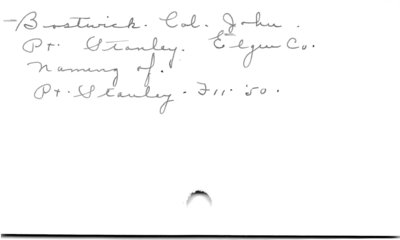 - Bostwick. Col. John.
Pt. Stanley. Elgin Co.
Naming of.
Pt. Stanley. F11. '50.